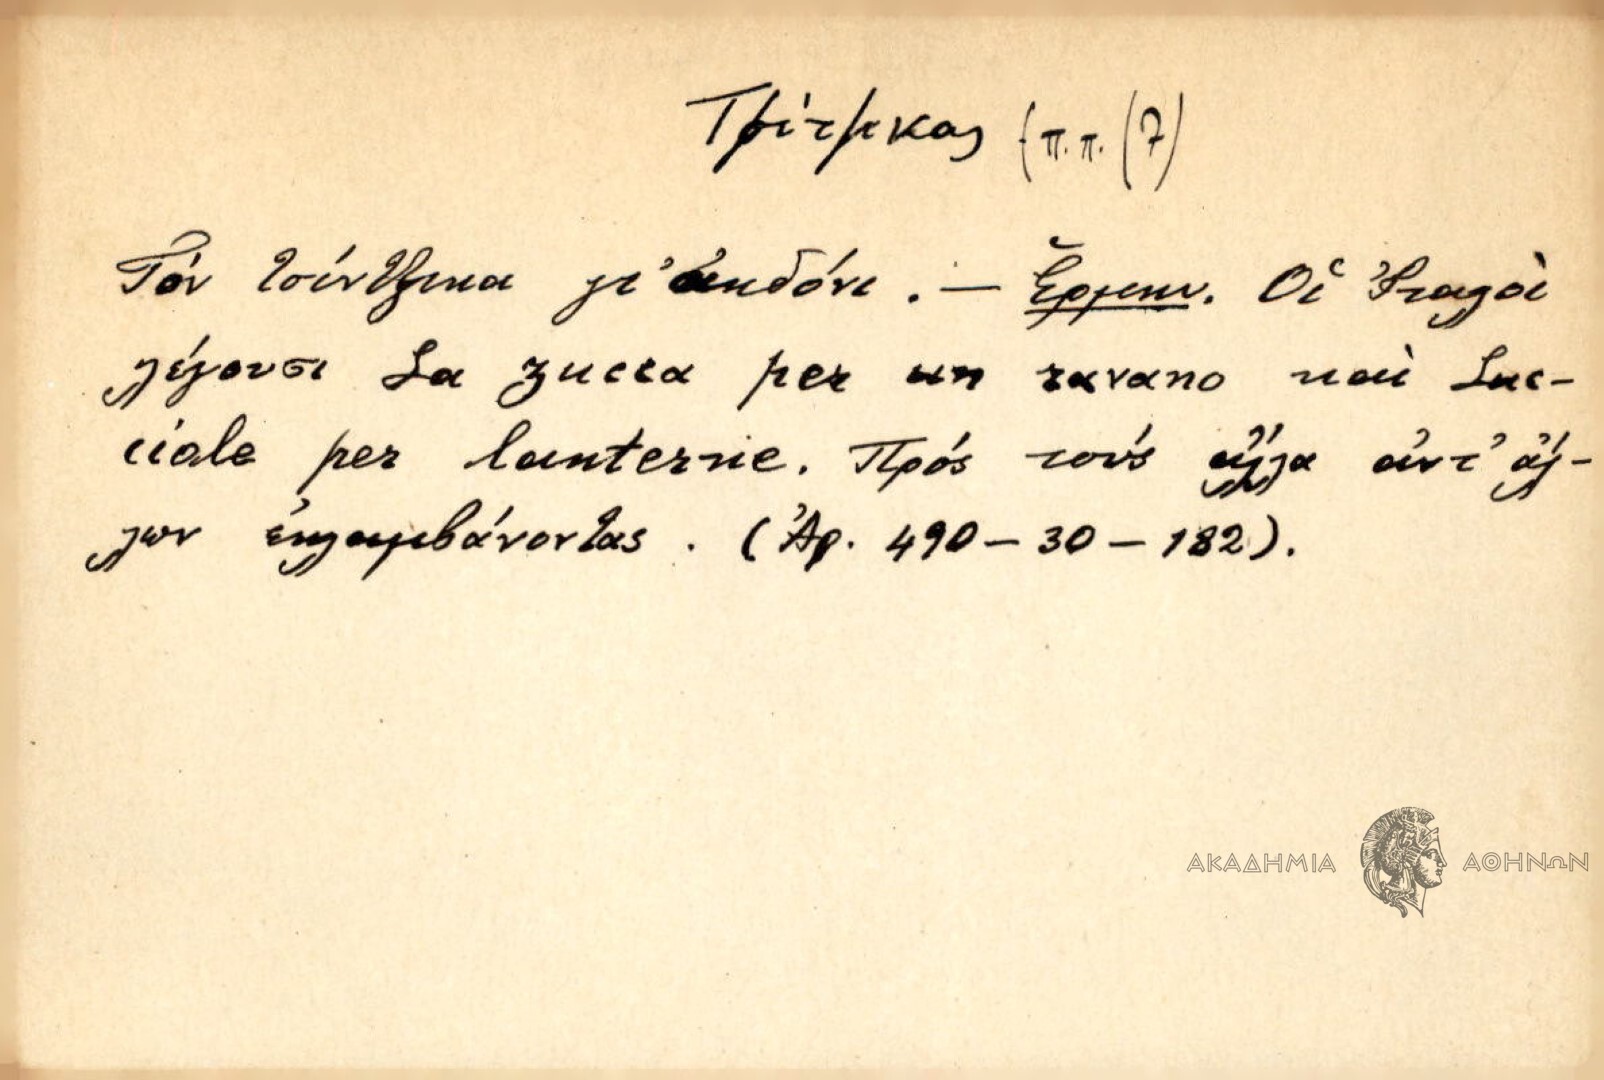 Τζίτζικας (π.π. (7)
Τὸν τσίντζικα γι' ἀηδόνι. — Ἑρμην. Οἱ Ἰταλοὶ
λέγουσι La zucca per un ravano καὶ Luc-
ciole per lanterne. Πρὸς τοὺς ἄλλα ἀντ' ἄλ-
λων ἐκλαμβάνοντας. (Ἀρ. 490 – 30 – 182).
ΑΚΑΔΗΜΙΑ ΑΘΗΝΩΝ